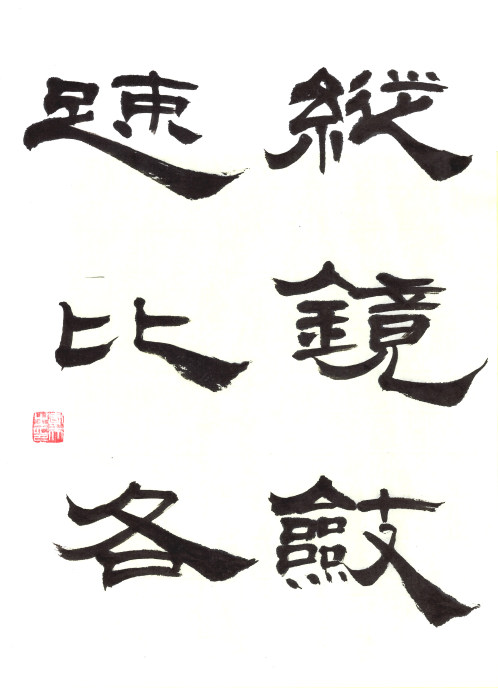 縦鏡斂
疎比各